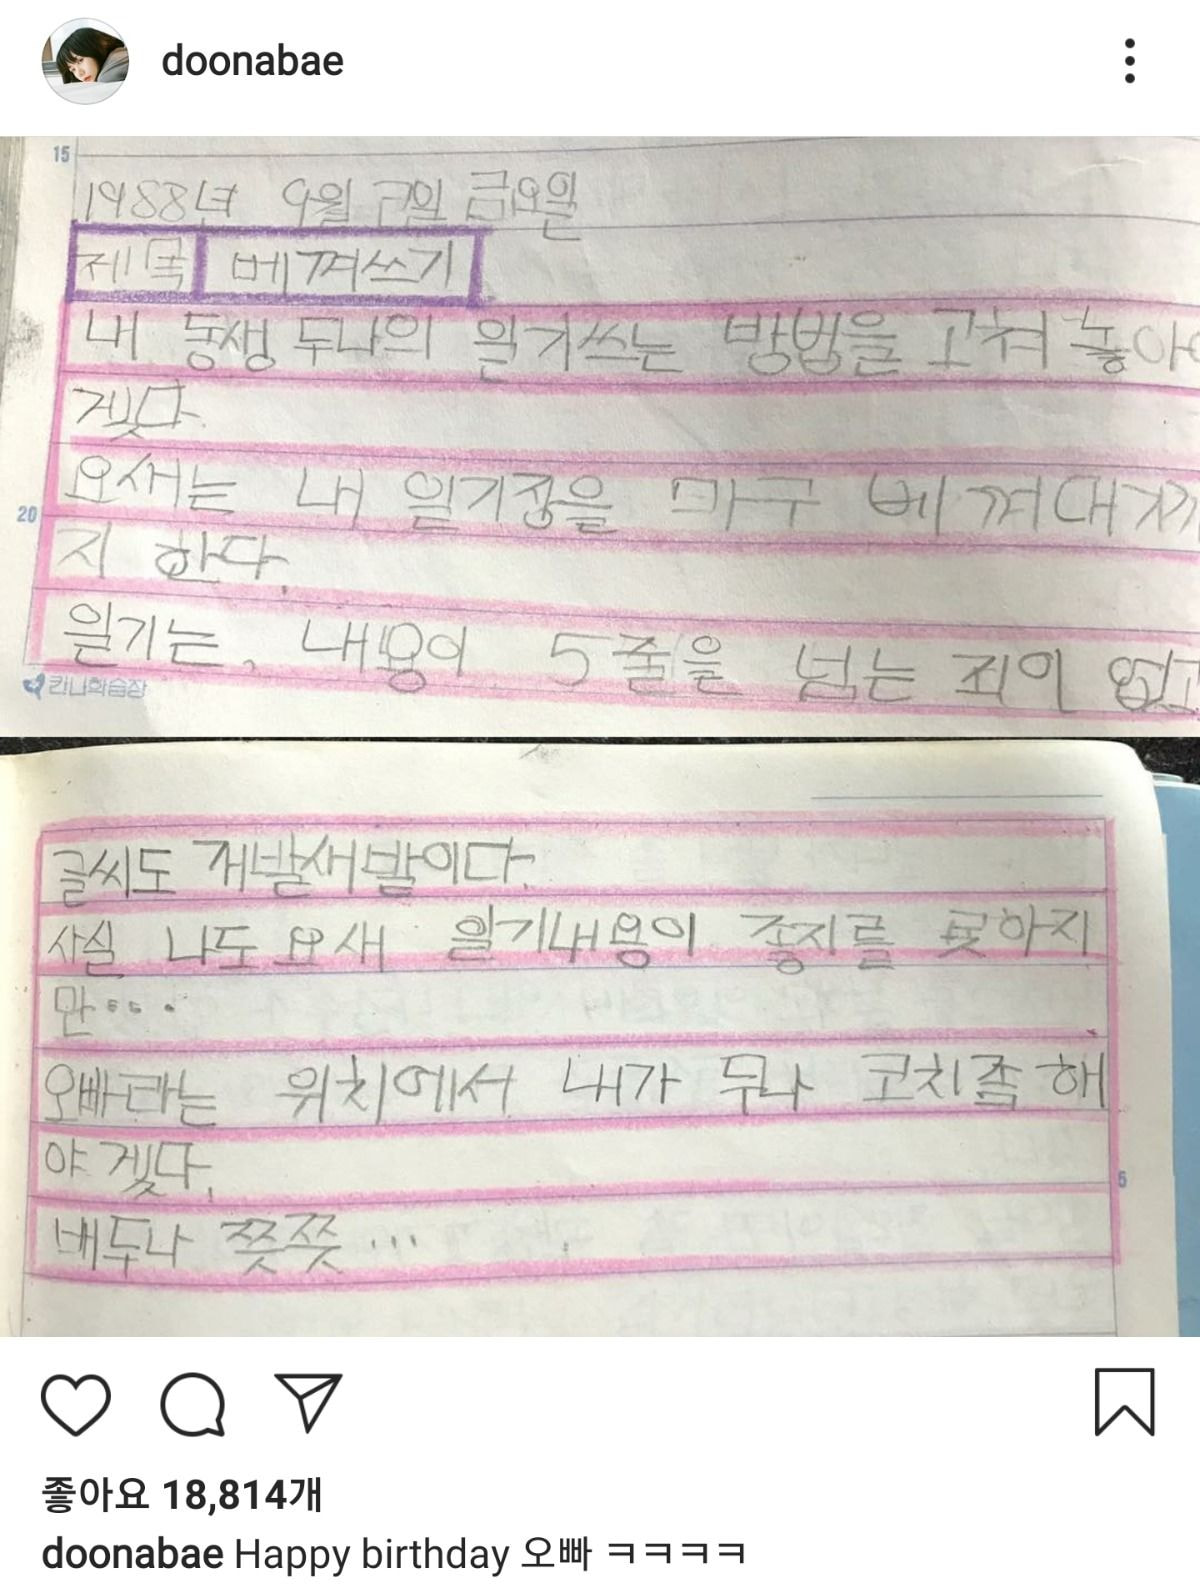 doonabae
15
1988년 9월 일 금요일
제목 베껴쓰기
내 동생 두나의 일기쓰는 방법을 고쳐 놓아야
겟다.
요새는 내 일기장을 마구 베껴대기까
지 한다.
20
일기는, 내용이 5줄을 넘는 죄이 없고
킨나학습장
글씨도 개발새발이다.
사실 나도 요새 일기내용이 좋지를 못하지
만...
오빠라는 위치에서 내가 두나 코치좀 해
야 겟다.
6
배두나 쯧쯧...
좋아요 18,814개
doonabae Happy birthday 오빠 ㅋㅋㅋㅋ